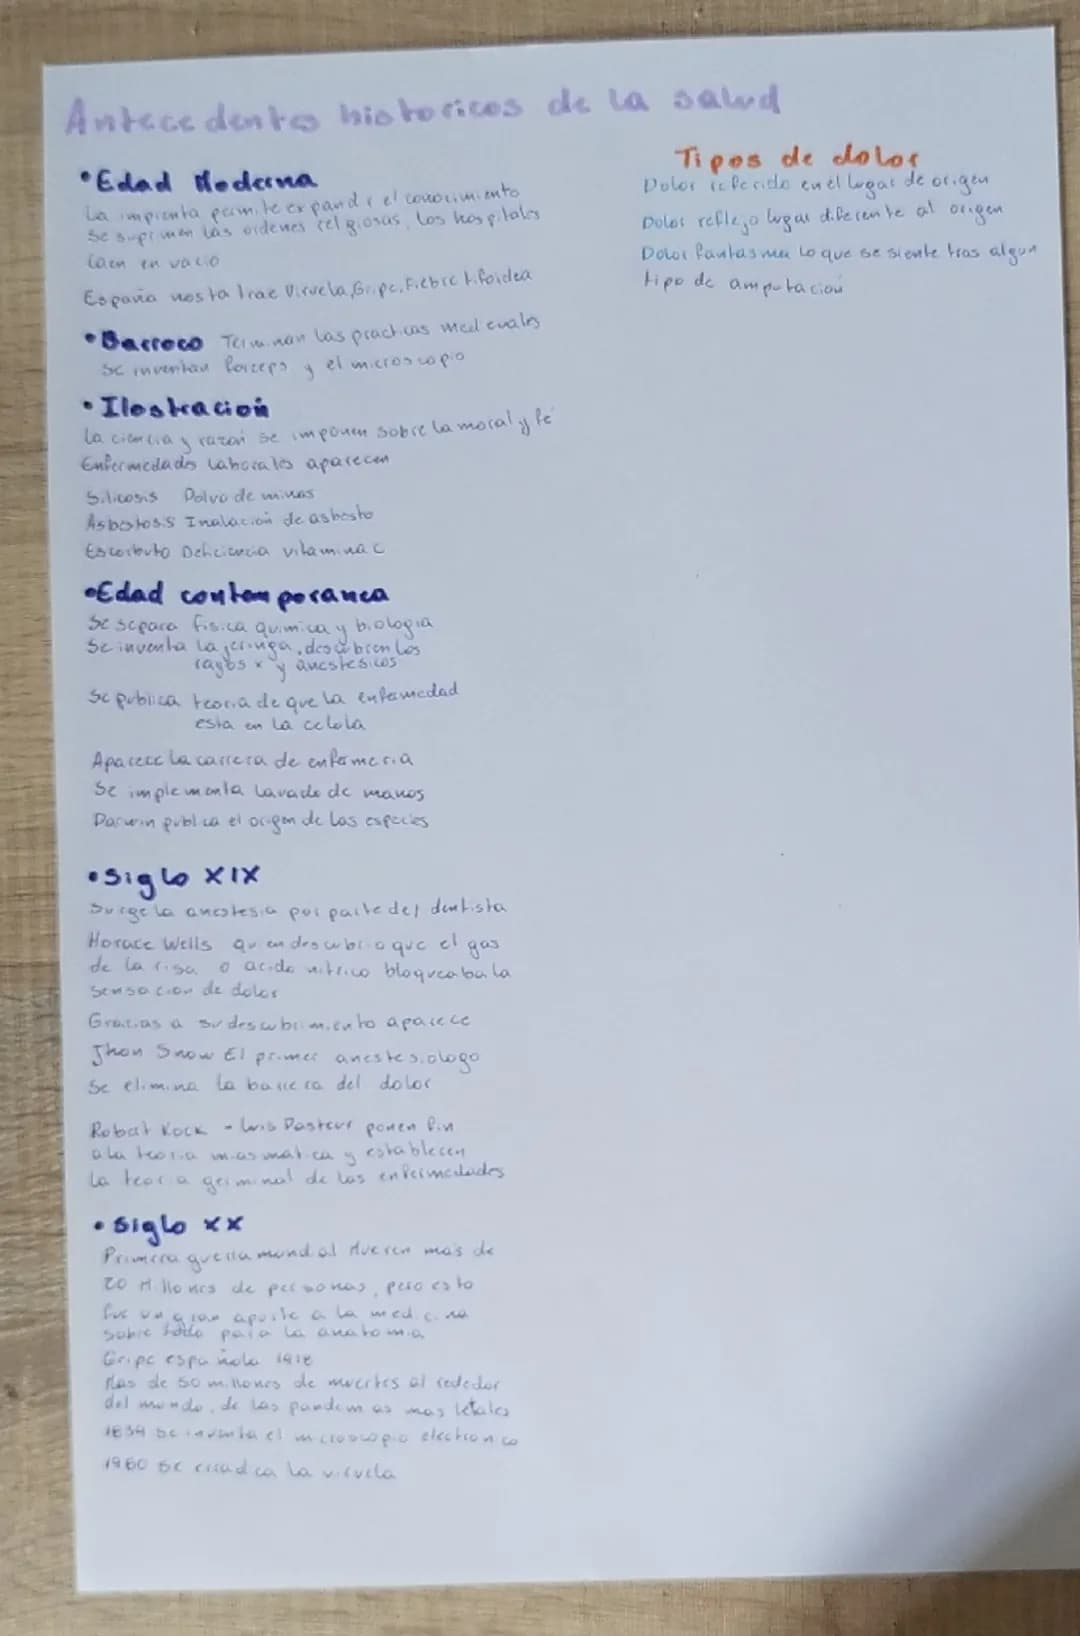 Antecedentes historicos de la salud
•Edad Moderna
La imprenta permite expandir el conocimiento
Se suprimen las ordenes religiosas, los hospitales
caen en vacio
España nosta trae Viruela, Gripe, Fiebre tifoidea
•Barroco Terminan las practicas medievales
Se inventan forceps y el microscopio
•Ilostración
La ciencia y razón se imponen sobre la moral y fé
Enfermedades laborales aparecen
Silicosis Polvo de minas
Asbestosis Inalación de asbesto
Escorbuto Deficiencia vitamina c
•Edad contemporanea
Se separa fisica quimica y biologia
Se inventa la jeringa, descubren los
rayos x y anestesicos
Se publica teoria de que la enfermedad
esta en la celola
Aparece la carrera de enfermeria
Se implementa lavado de manos
Darwin publica el origen de las especies
•Siglo XIX
Surge la anestesia por parte del dentista
Horace Wells quien descubrio que el gas
de la risa o acido nitrico bloqueaba la
sensacion de dolor
Gracias a su descubrimiento aparece
Jhon Snow El primer anestesiologo
Se elimina la barrera del dolor
Robert Kock - Luis Pasteur ponen fin
a la teoria miasmatica y establecen
la teoria germinal de las enfermedades
•Siglo XX
Primera guerra mundial Mueren más de
20 Millones de personas, pero esto
fue un gran aporte a la medicina
sobre todo para la anatomia
Gripe española 1918
Mas de 50 millones de muertes al rededor
del mundo, de las pandemias mas letales
se inventa el microscopio electronico
1980 se erradica la viruela
Tipos de dolor
Dolor referido en el lugar de origen
Dolor reflejo lugar diferente al origen
Dolor fantasma lo que se siente tras algun
tipo de amputación